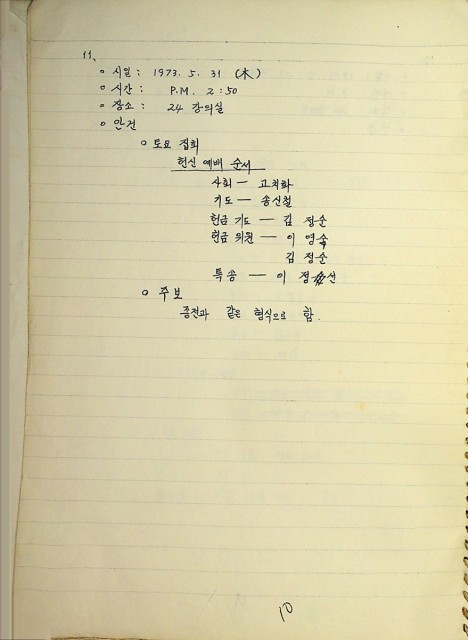 11.
○ 시일 : 1973. 5. 31 (木)
○ 시간 : P.M. 2:50
○ 장소 : 24 강의실
○ 안건
○ 토요 집회
헌신 예배 순서
사회 — 고석화
기도 — 송신철
헌금 기도 — 김 정순
헌금 위원 — 이 영숙
김 정순
특송 — 이 정선
○ 주보
종전과 같은 형식으로 함.
10